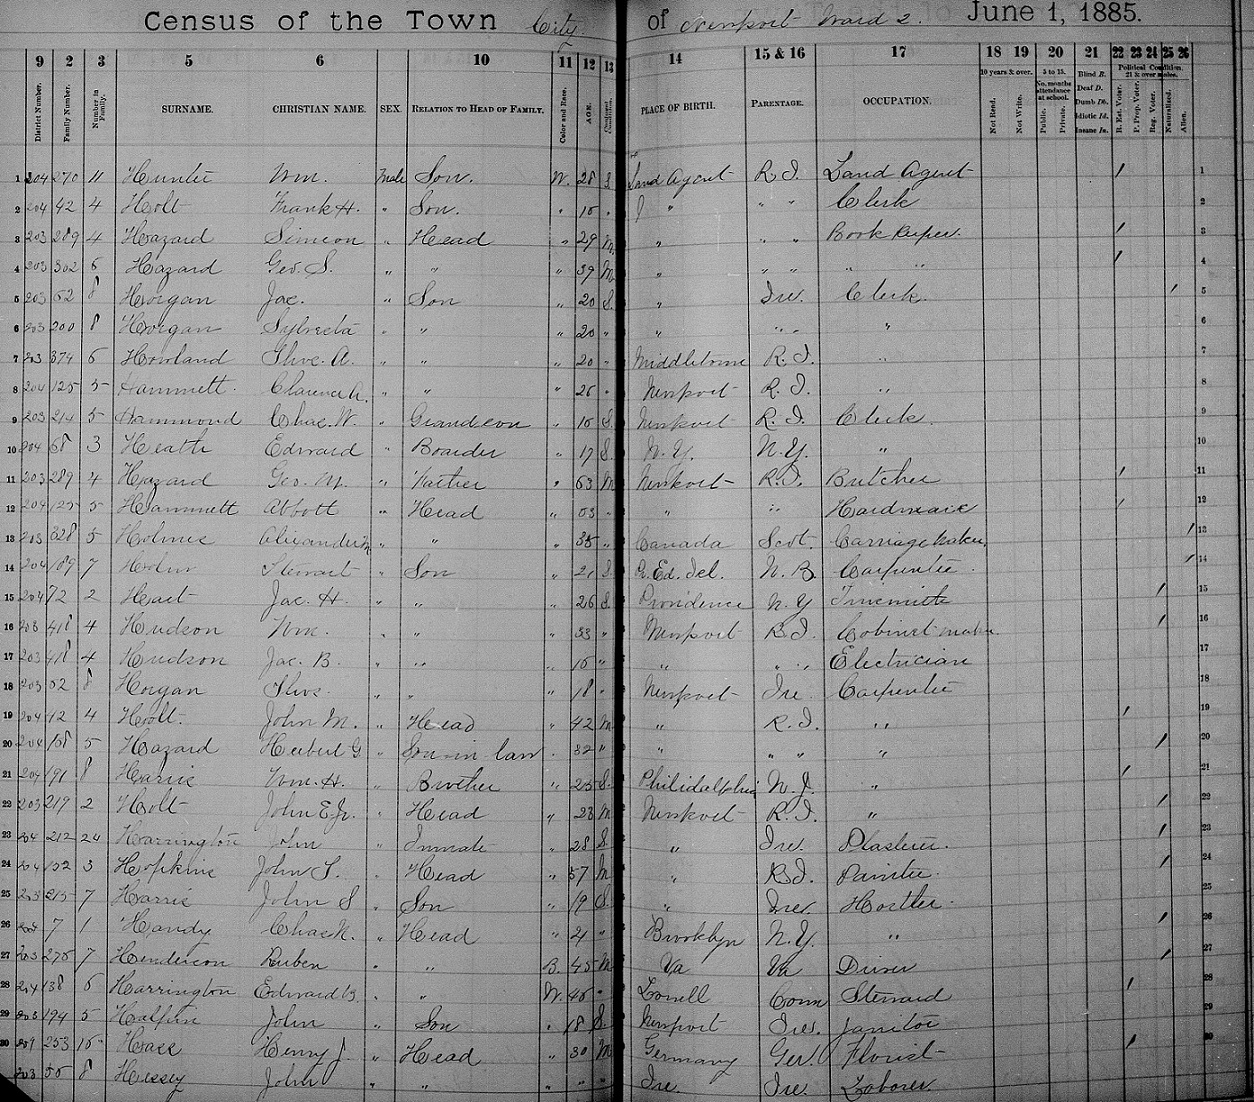 Census of the Town City of Newport Ward 2. June 1, 1885.
9 2 3 5 6 10 11 12 13 14 15 & 16 17 18 19 20 21 22 23 24 25 26
District Number. Family Number. Number in Family. SURNAME. CHRISTIAN NAME. SEX. RELATION TO HEAD OF FAMILY. Color and Race. AGE. PLACE OF BIRTH. PARENTAGE. OCCUPATION. 10 years & over. Not Read. Not Write. 5 to 15. No. months attendance at school. Public. Private. Blind B. Deaf D. Dumb Db. Idiotic Id. Insane In. Political Condition. 21 & over males. R. Est. Voter. P. Prop. Voter. Reg. Voter. Naturalized. Alien.
1 204 270 11 Hunter Wm. Male Son. W. 28 S Land Agent R I. Land Agent / 1
2 204 42 4 Holt Frank H. " Son. " " " " Clerk 2
3 203 289 4 Hazard Simeon " Head " 29 M. " " " Book Keeper. / 3
4 203 302 6 Hazard Geo. S. " " " 39 M " " " " " / 4
5 203 52 8 Horgan Jas. " Son " 20 S. " Ire. Clerk. / 5
6 203 200 8 Horgan Sylvester " " " 20 " " " " " 6
7 203 374 6 Howland Thos. A. " " " 20 " Middletown R. I. " 7
8 204 125 5 Hammett Clarence A. " " " 26 " Newport R. I. " 8
9 203 214 5 Hammond Chas. W. " Grandson " S. Newport R. I. Clerk. 9
10 204 68 3 Heath Edward " Boarder " 17 S. N. Y. N. Y. " 10
11 203 289 4 Hazard Geo. M. " Father " 63 M Newport R. I. Butcher / 11
12 204 125 5 Hammett Abbott " Head " 53 " " " Hardware / 12
13 203 328 5 Holmes Alexander M " " " 35 " Canada Scot. Carriage Maker. / 13
14 204 189 7 Stewart " Son " 21 S. P. Ed. Isl. N. B. Carpenter. / 14
15 204 72 2 Hart Jas. H. " " " 26 S. Providence N. Y Tinsmith / 15
16 203 418 4 Hudson Wm. " " " 33 " Newport R. I. Cabinet maker / 16
17 203 418 4 Hudson Jas. B. " " " " " " " Electrician 17
18 203 52 8 Horgan Thos. " " " 18 " Newport Ire. Carpenter 18
19 204 42 4 Holt. John M. " Head " 42 M. " R. I. " / 19
20 204 158 5 Hazard Herbert G " Son in law " 32 " " " " " / 20
21 204 191 8 Harris Wm. H. " Brother " 25 S. Philidalphia N. J. " / 21
22 203 219 2 Holt John E. Jr. " Head " 23 M Newport R. I. " / 22
23 204 212 24 Harrington John " Inmate " 28 S. " Ire. Plasterer. / 23
24 204 152 3 Hopkins John S. " Head " 57 M " R. I. Painter. / 24
25 203 215 7 Harris John S " Son " 19 S. " Ire. Hostler. 25
26 204 7 1 Handy Chas. N. " Head " 21 " Brooklyn N. Y. " / 26
27 203 275 7 Henderson Ruben " " B. 45 M Va Va Driver / 27
28 204 138 6 Harrington Edward B. " " W. 46 " Lowell Conn Steward / 28
29 203 194 5 Halpin John " Son " 18 S. Newport Ire. Janitor 29
30 204 253 Hass Henry J. " Head " 30 M Germany Ger. Florist / 30
203 50 8 Hissey John " " " " " Ire. Ire. Laborer